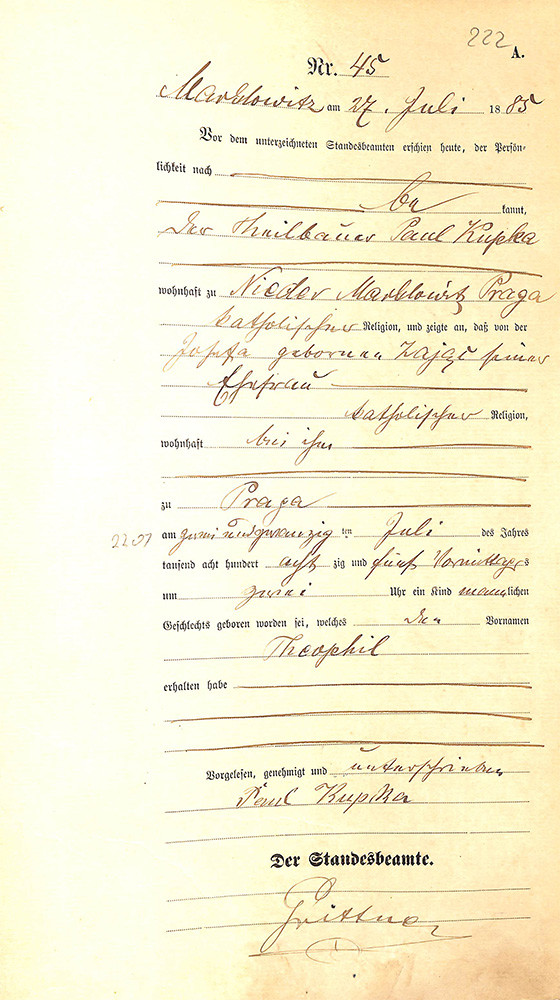 222
A.
Nr. 45
Marklowitz am 27. Juli 1885
Vor dem unterzeichneten Standesbeamten erschien heute, der Persön-
lichkeit nach
be kannt,
der Theilbauer Paul Kupka
wohnhaft zu Nieder Marklowitz Praga
katholischer Religion, und zeigte an, daß von der
Josefa gebornen Zając seiner
Ehefrau
katholischer Religion,
wohnhaft bei ihm
zu Praga
2207 am zwei und zwanzig ten Juli des Jahres
tausend acht hundert acht zig und fünf Vormittags
um zwei Uhr ein Kind männlichen
Geschlechts geboren worden sei, welches den Vornamen
Theophil
erhalten habe
Vorgelesen, genehmigt und unterschrieben
Paul Kupka
Der Standesbeamte.
Grittner